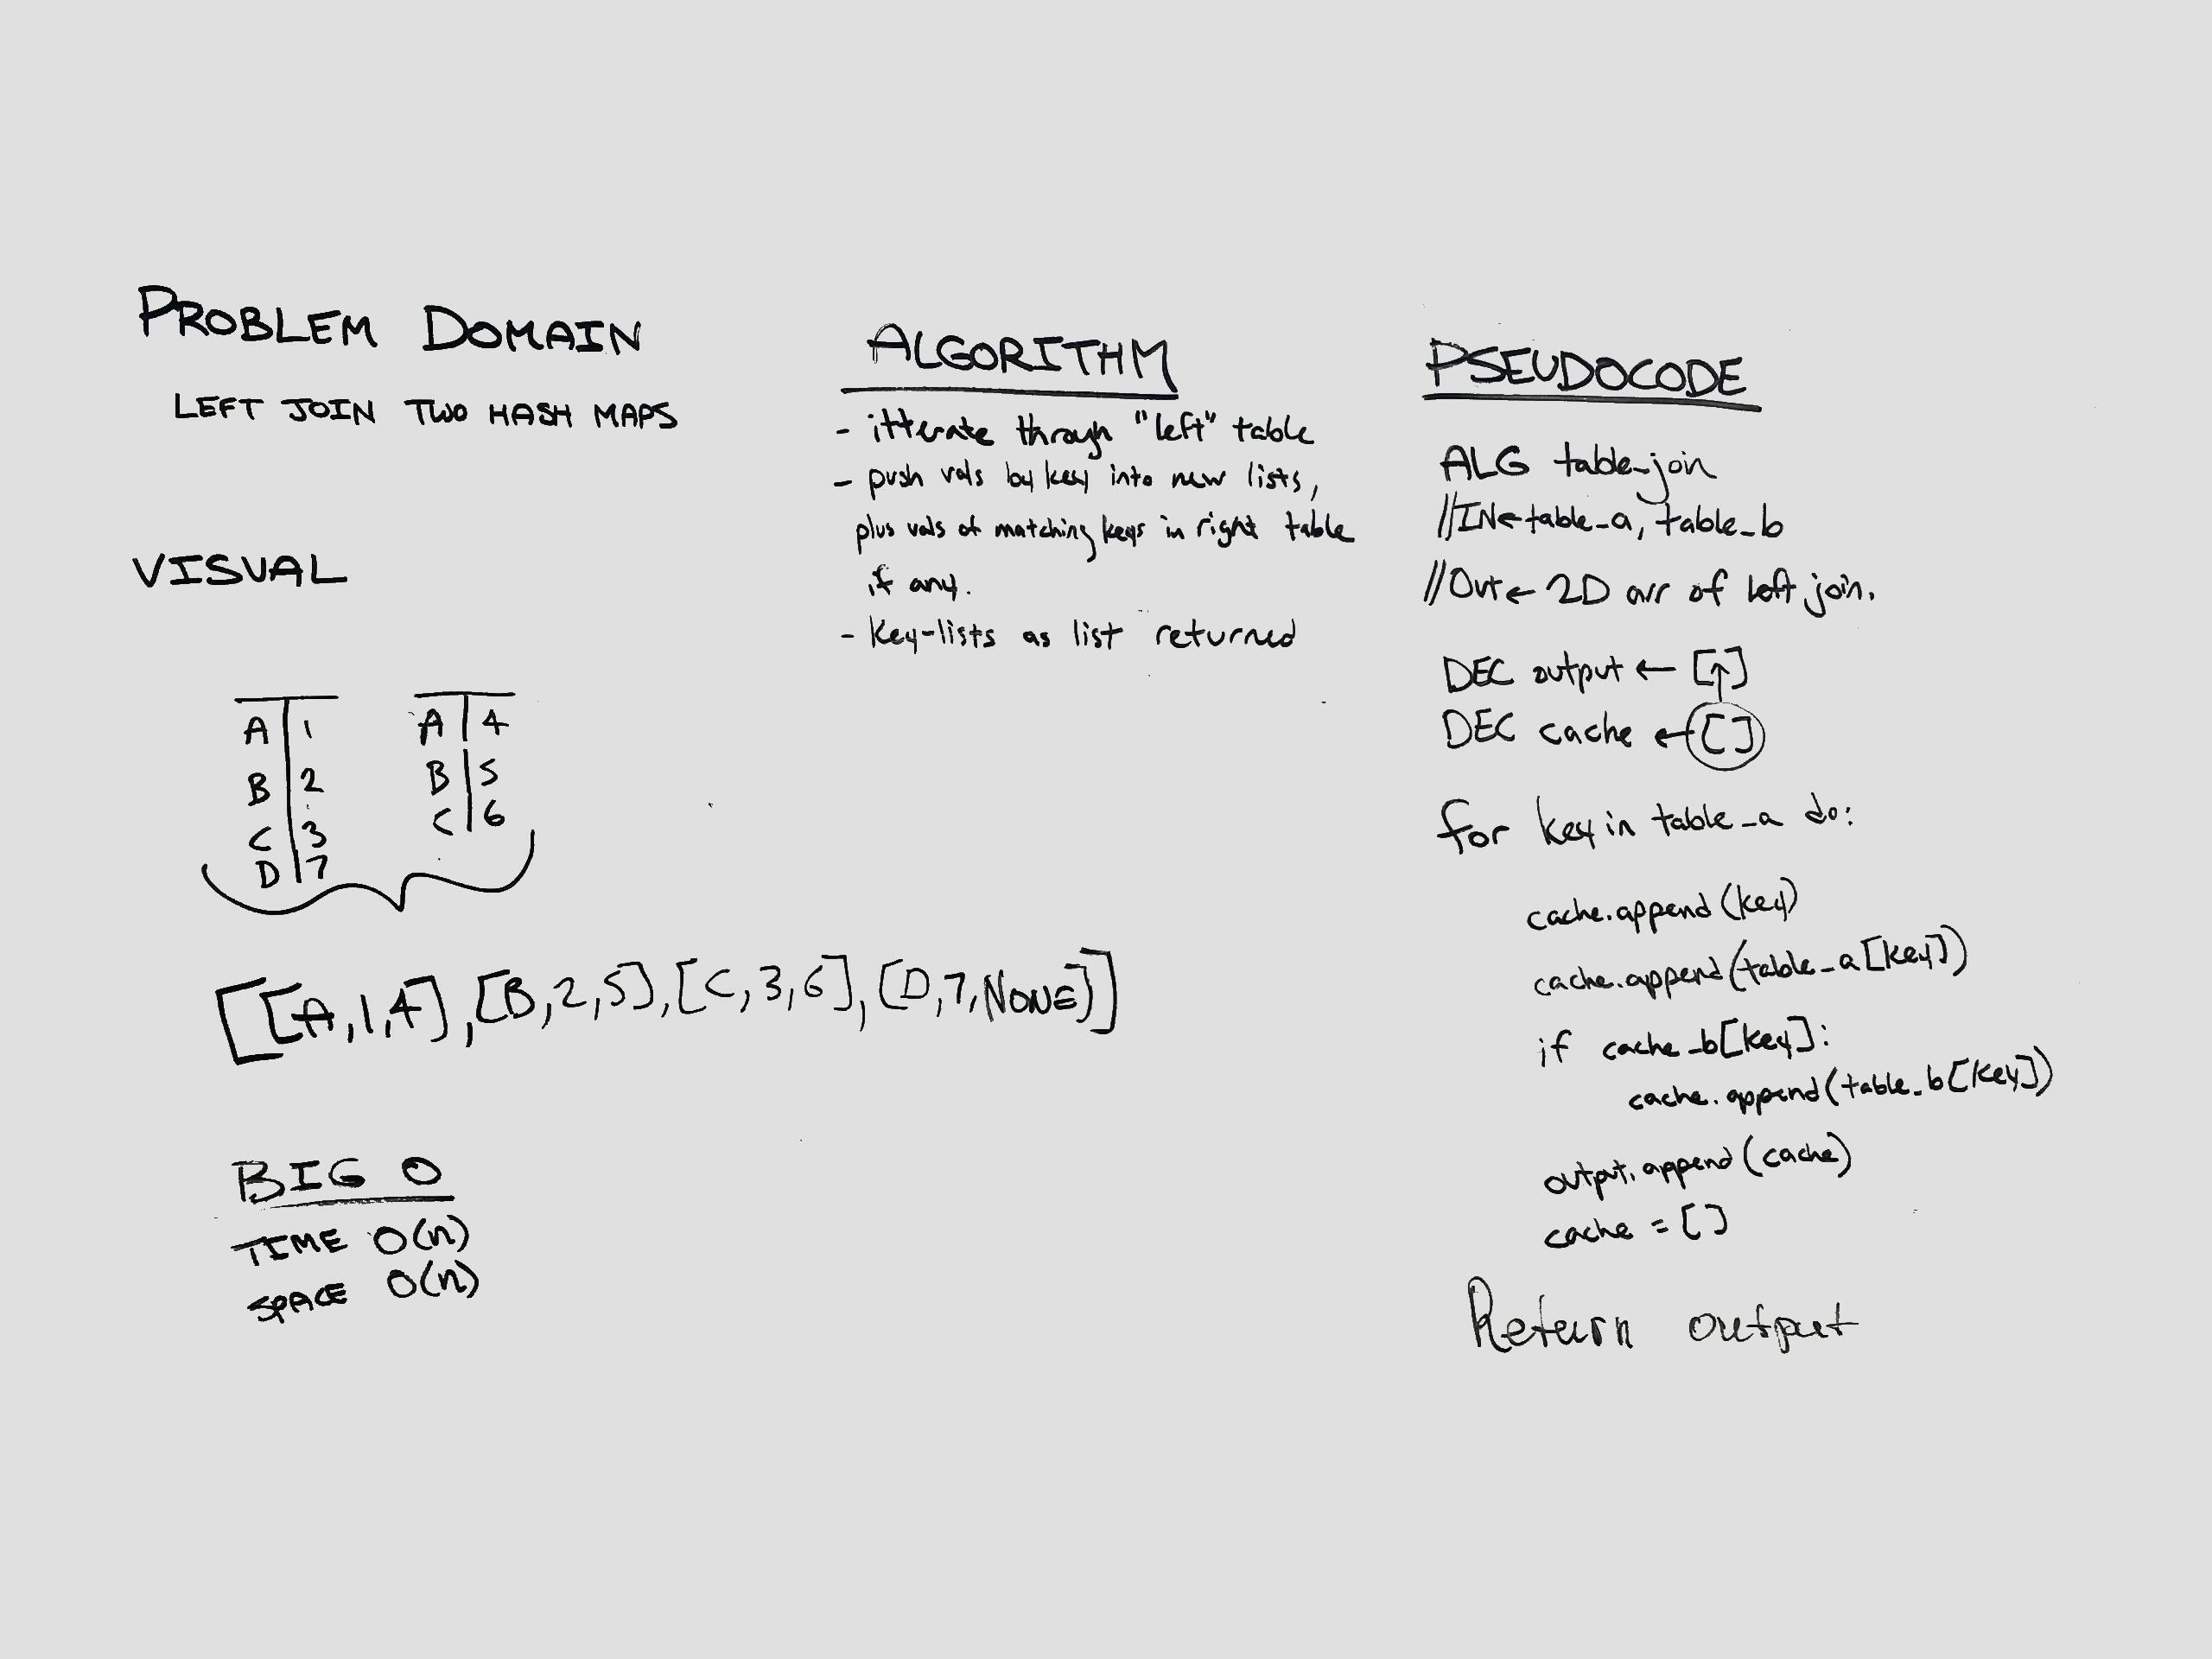 PROBLEM DOMAIN
LEFT JOIN TWO HASH MAPS
VISUAL
A 1
B 2
C 3
D 7
A 4
B 5
C 6
[[A,1,4],[B,2,5],[C,3,6],[D,7,NONE]]
BIG O
TIME O(n)
SPACE O(n)
ALGORITHM
- itterate through "left" table
- push vals by key into new lists,
plus vals of matching keys in right table
if any.
- Key-lists as list returned
PSEUDOCODE
ALG table_join
//IN← table_a, table_b
//Out← 2D arr of left join.
DEC output ← []
DEC cache ← []
for key in table_a do:
cache.append(key)
cache.append(table_a[key])
if cache_b[key]:
cache.append(table_b[key])
output.append(cache)
cache = []
Return output